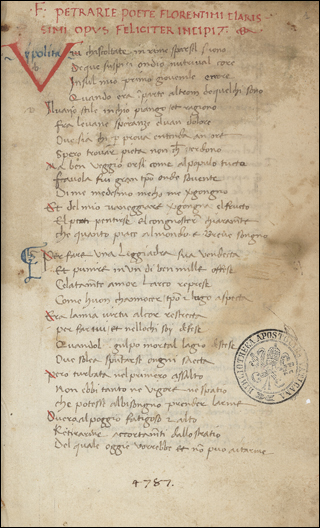 F. PETRARCE POETE FLORENTINI CLARIS
SIMI OPVS FELICITER INCIPIT
Voi chascoltate in rime sparse il suono
De que suspiri ondio nutriva il core
In sul mio primo giovenile errore
Quando era in parte altr da quel chi sono
Del vano stile in chio piango et ragiono
Fra le vane speranze el van dolore
Ove sia chi per prova entenda amore
Spero trovar pieta non che perdono
Ma ben veggio or si come al popul tutto
Favola fui gran tempo onde sovente
Di me medesmo mecho me vergogno
Et del mio vaneggiare vergogna el fructo
El pentirse el cognoscer chiaramente
Che quanto piace al mondo e breve sogno
Per fare una leggiadra sua vendecta
Et punire in un di ben mille offese
Celatamente amor larco represe
Come huom cha nocer tempo e luogo aspecta
Era la mia virtu al cor restrecta
per far ivi et nellochi soy difese
Quando l colpo mortal lagio discese
Ove solea spuntarse ongni saecta
Pero turbata nel primero assalto
Non ebbe tanto ne vigore ne spatio
che potesse al bisongno prender larme
Overo al poggio faticoso et alto
Retirarme accortamente dallo stratio
Del quale oggie vorrebbe et non puo aitarme
BIBLIOTHECA APOSTOLICA VATICANA
4787.